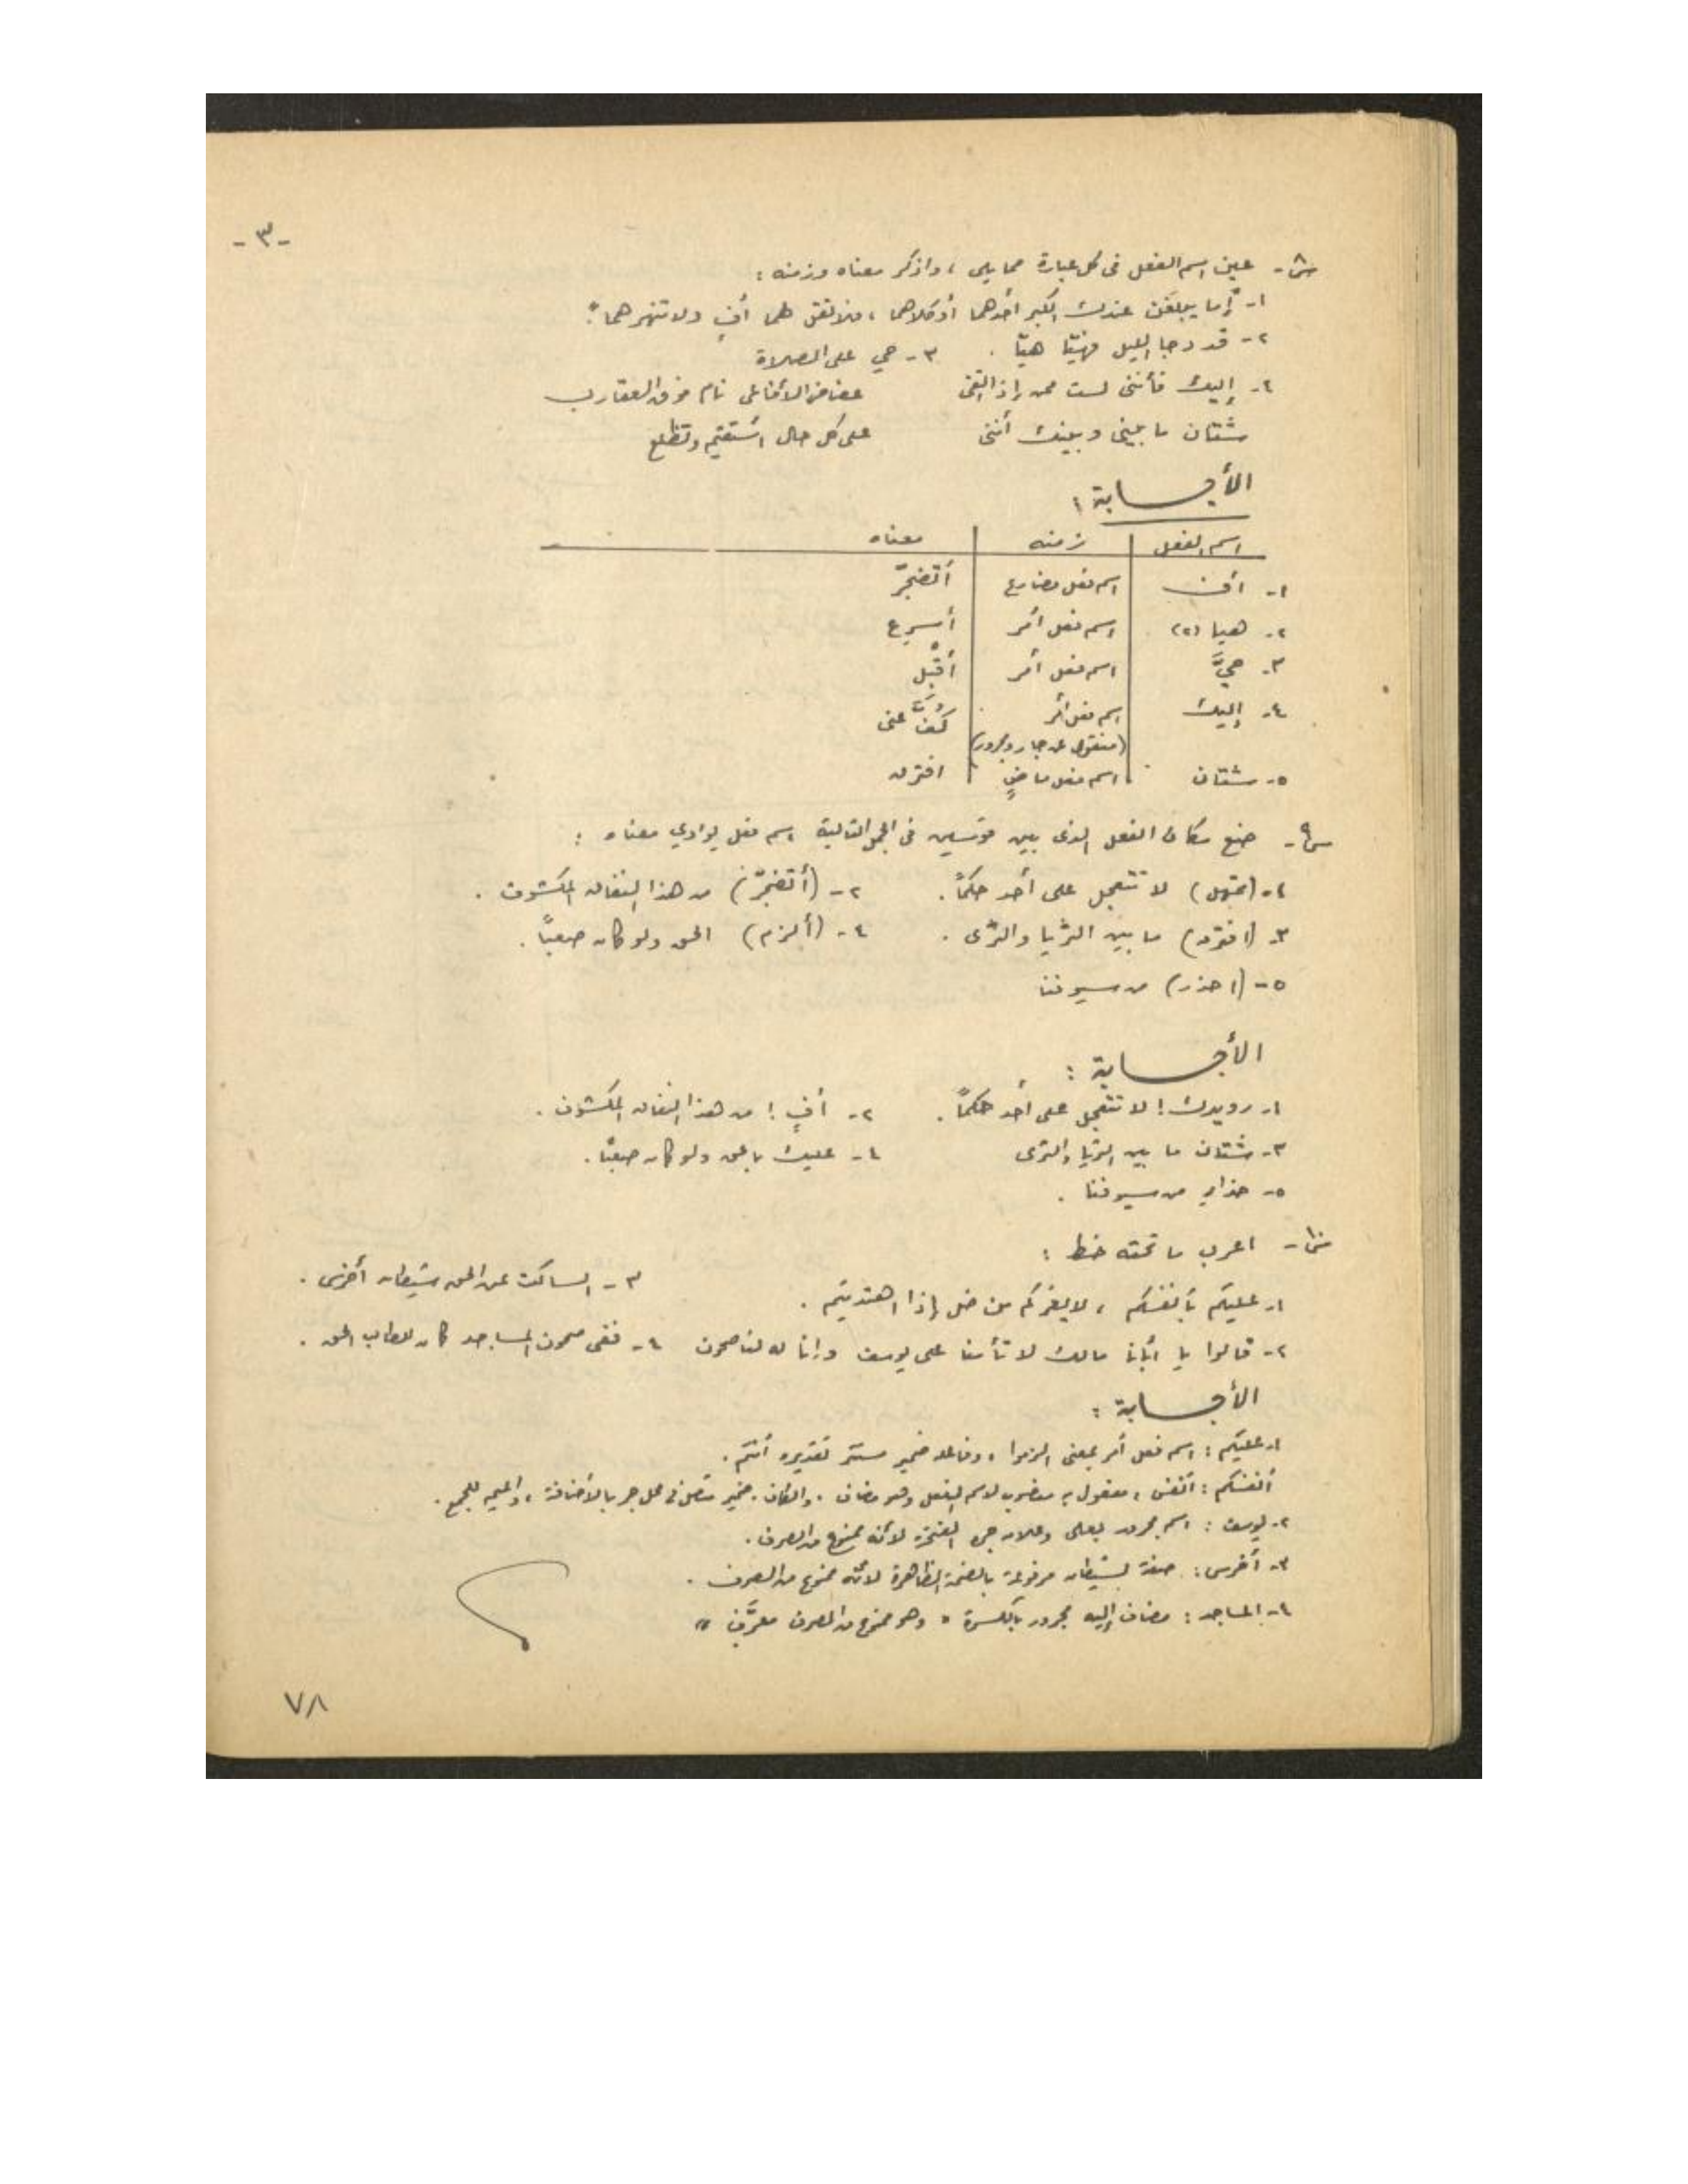 -٣-
س٨- عين اسم الفعل فى كل عبارة مما يلي ، واذكر معناه وزمنه :
١- "إما يبلغن عندك الكبر أحدهما أو كلاهما ، فلا تقل لهما أفٍ ولا تنهرهما"
٢- قد دجا الليل فهيّا هيّا . ٣- حي على الصلاة
٤- إليك فأننى لست ممن إذا اتقى عضاض الأفاعى نام فوق العقارب
شتان ما بينى وبينك أننى على كل حال أستقيم وتظلع
الأجـــابة :
اسم الفعل | زمنه | معناه
١- أف | اسم فعل مضارع | أتضجّر
٢- هيا (٢) | اسم فعل أمر | أسرع
٣- حيَّ | اسم فعل أمر | أقْبل
٤- إليك | اسم فعل أمر | كُفَّ عنى
(منقول عن جار ومجرور)
٥- شتان | اسم فعل ماضٍ | افترق
س٩- ضع مكان الفعل الذى بين قوسين فى الجمل التالية اسم فعل يؤدي معناه :
١- (تمهل) لا تتعجل على أحد حكماً . ٢- (أتضجّر) من هذا النفاق المكشوف .
٣- (افترق) ما بين الثريا والثرى . ٤- (ألزم) الحق ولو كان صعباً .
٥- (احذر) من سيوفنا
الأجـــابة :
١- رويدك ! لا تتعجل على أحد حكماً . ٢- أفٍ ! من هذا النفاق المكشوف .
٣- شتان ما بين الثريا والثرى ٤- عليك بالحق ولو كان صعباً .
٥- حذارِ من سيوفنا .
س١٠- اعرب ما تحته خط :
١- عليكم بأنفسكم ، لا يغركم من ضل إذا اهتديتم . ٣- الساكت عن الحق شيطان أخرس .
٢- قالوا يا أبانا مالك لا تأمنا على يوسف وإنا له لناصحون ٤- ففى صحون المساجد كان للطالب الحق .
الأجـــابة :
١- عليكم : اسم فعل أمر بمعنى الزموا ، وفاعله ضمير مستتر تقديره أنتم .
أنفسكم : أنفس ، مفعول به منصوب لاسم الفعل وهو مضاف . والكاف . ضمير متصل فى محل جر بالأضافة ، والميم للجمع .
٢- يوسف : اسم مجرور بعلى وعلامة جره الفتحة لأنه ممنوع من الصرف .
٣- أخرس : صفة لشيطان مرفوعة بالضمة الظاهرة لأنه ممنوع من الصرف .
٤- المساجد : مضاف إليه مجرور بالكسرة " وهو ممنوع من الصرف معرَّف "
٧٨